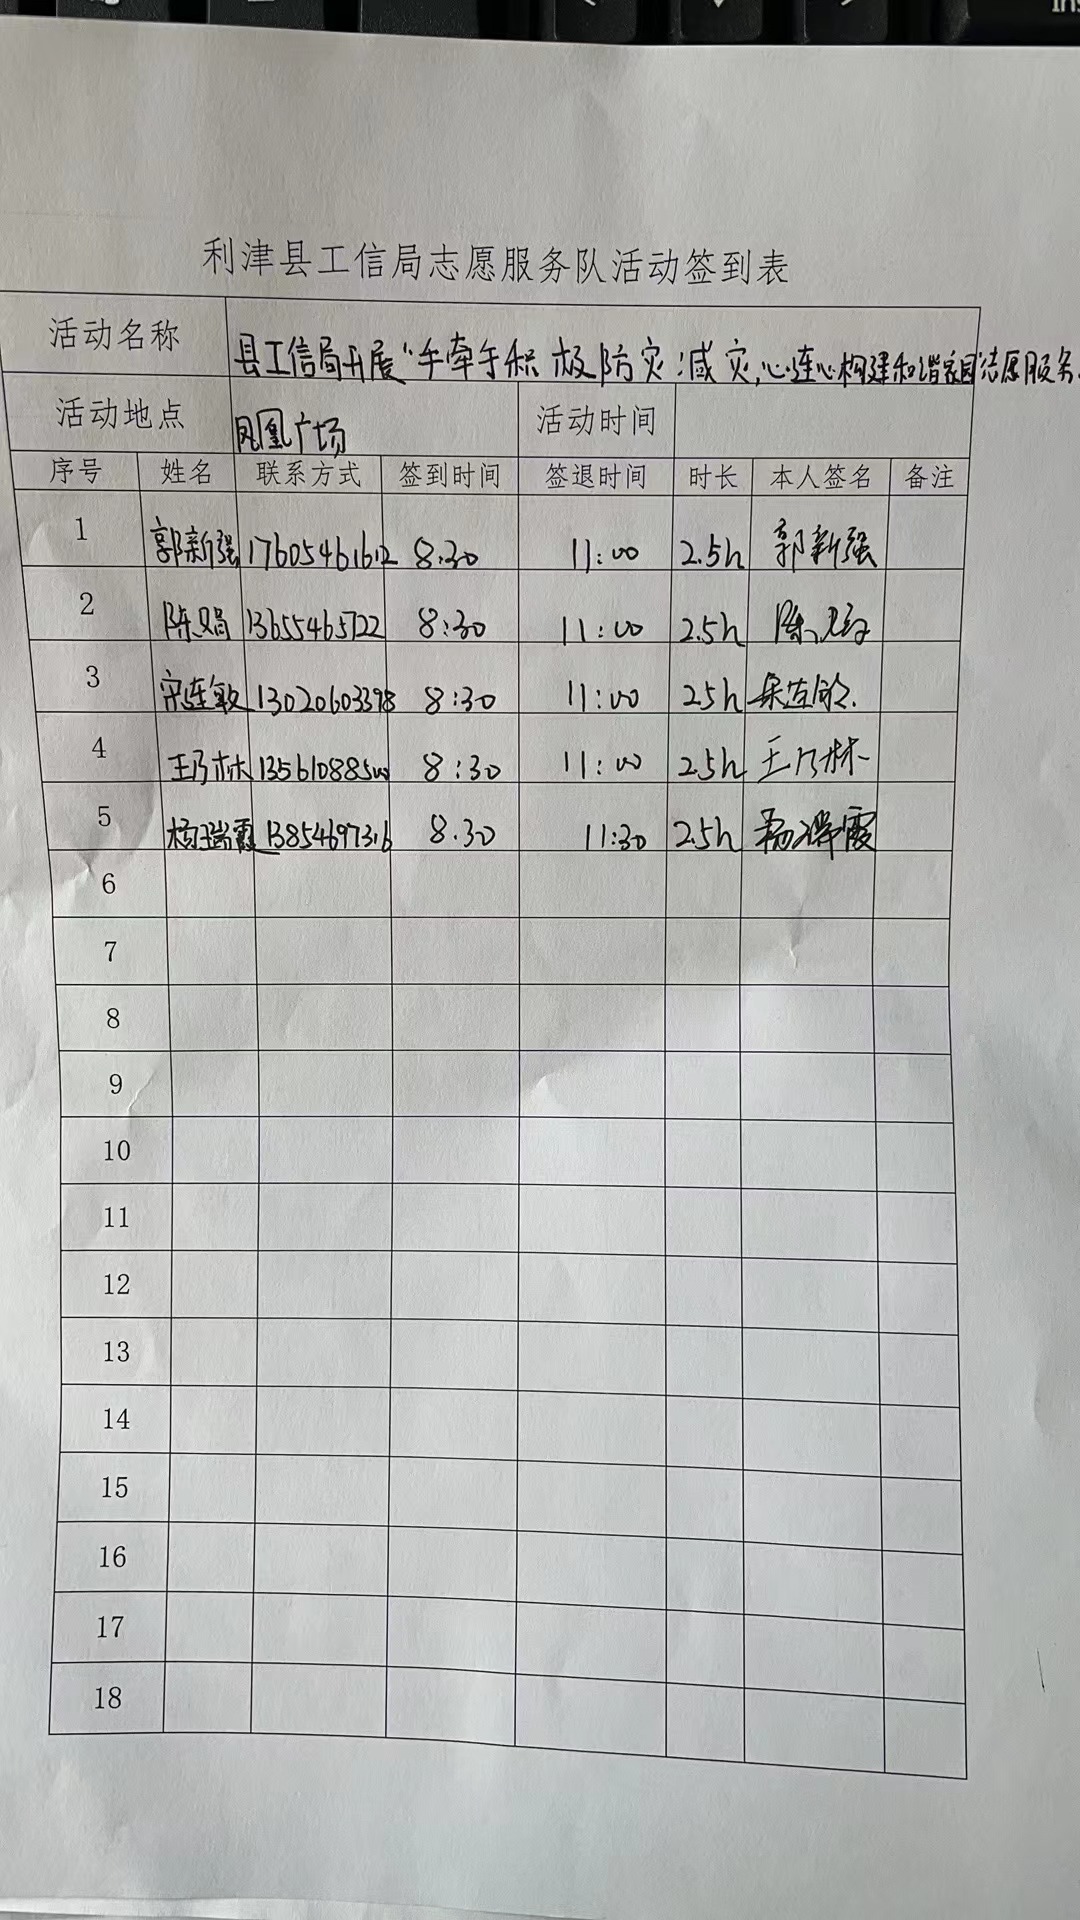 利津县工信局志愿服务队活动签到表
活动名称 县工信局开展“手牵手积极防灾减灾,心连心构建和谐家园”志愿服务
活动地点 凤凰广场 活动时间
序号 姓名 联系方式 签到时间 签退时间 时长 本人签名 备注
1 郭新强 17605461612 8:30 11:00 2.5h 郭新强
2 陈娟 13655465722 8:30 11:00 2.5h 陈娟
3 宋连敏 13020603398 8:30 11:00 2.5h 宋连敏
4 王乃林 13561088500 8:30 11:00 2.5h 王乃林
5 杨瑞霞 13854697316 8.30 11:30 2.5h 杨瑞霞
6
7
8
9
10
11
12
13
14
15
16
17
18